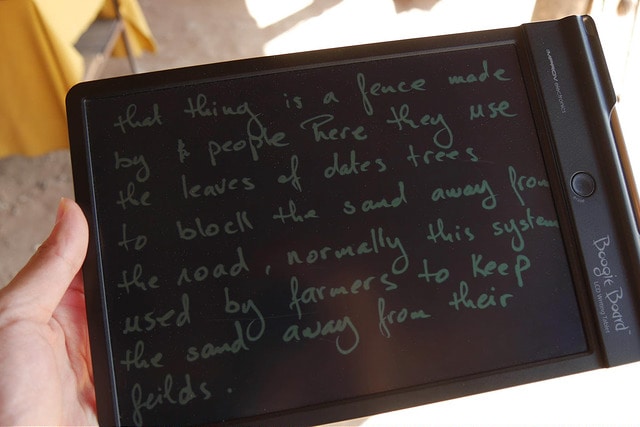 that thing is a fence made
by & people here they use
the leaves of dates trees
to block the sand away from
the road, normally this system
used by farmers to keep
the sand away from their
feilds.
IMPROV electronics
Boogie Board™
LCD Writing Tablet